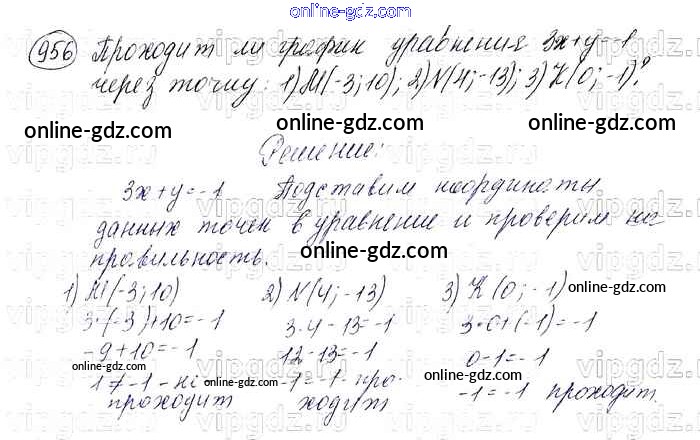 online-gdz.com
956 Проходит ли график уравнения 3x+y=-1
через точку: 1) M(-3; 10); 2) N(4; -13); 3) K(0; -1)?
online-gdz.com online-gdz.com online-gdz.com
Решение:
3x+y=-1 Подставим координаты
данных точек в уравнение и проверим на
правильность.
online-gdz.com
1) M(-3; 10) 2) N(4; -13) 3) K(0; -1)
online-gdz.com
3·(-3)+10=-1 3·4-13=-1 3·0+(-1)=-1
-9+10=-1 12-13=-1 0-1=-1
online-gdz.com online-gdz.com
1≠-1 - не -1=-1 - про- -1=-1 проходит
проходит ходит
online-gdz.com